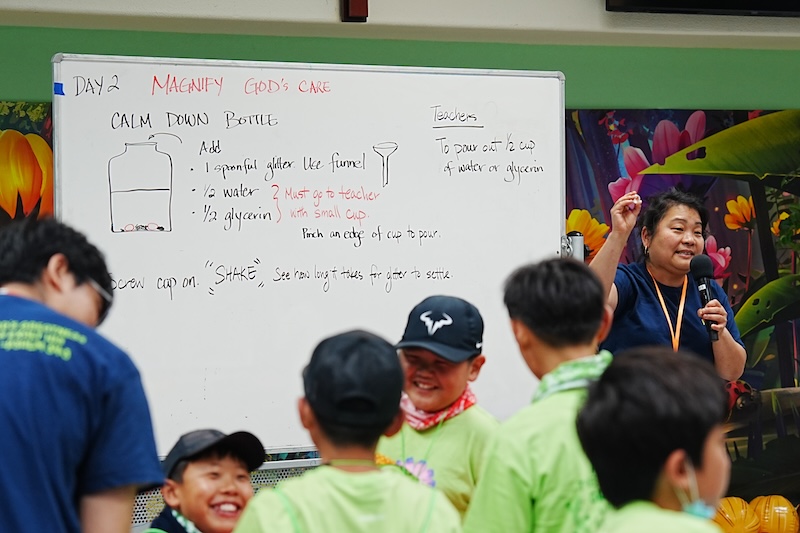 DAY 2 MAGNIFY GOD'S CARE
CALM DOWN BOTTLE
Add
• 1 spoonful glitter. Use funnel
• 1/2 water
• 1/2 glycerin
Must go to teacher
with small cup.
Pinch an edge of cup to pour.
Screw cap on. "SHAKE" See how long it takes for glitter to settle.
Teachers
To pour out 1/2 cup
of water or glycerin